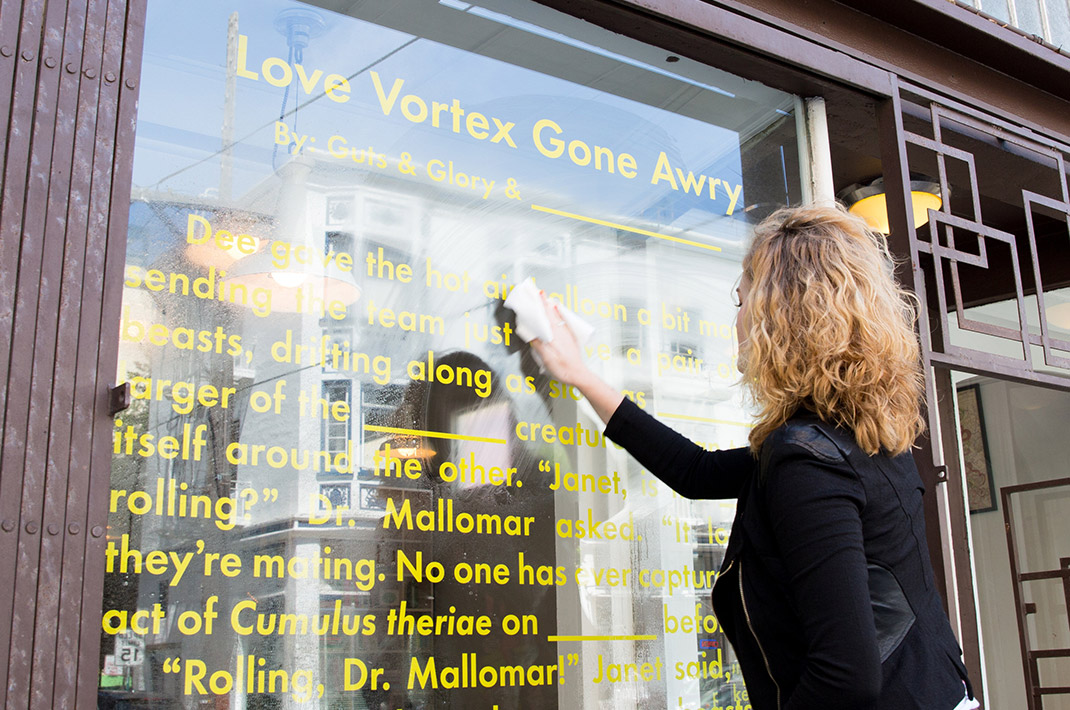 Love Vortex Gone Awry
By: Guts & Glory &
Dee gave the hot air balloon a bit
sending the team just a pair
beasts, drifting along as
larger of the creature
itself around the other. “Janet, is
rolling?” Dr. Mallomar asked. “It
they’re mating. No one has ever
act of Cumulus theriae on before
“Rolling, Dr. Mallomar!” Janet said,